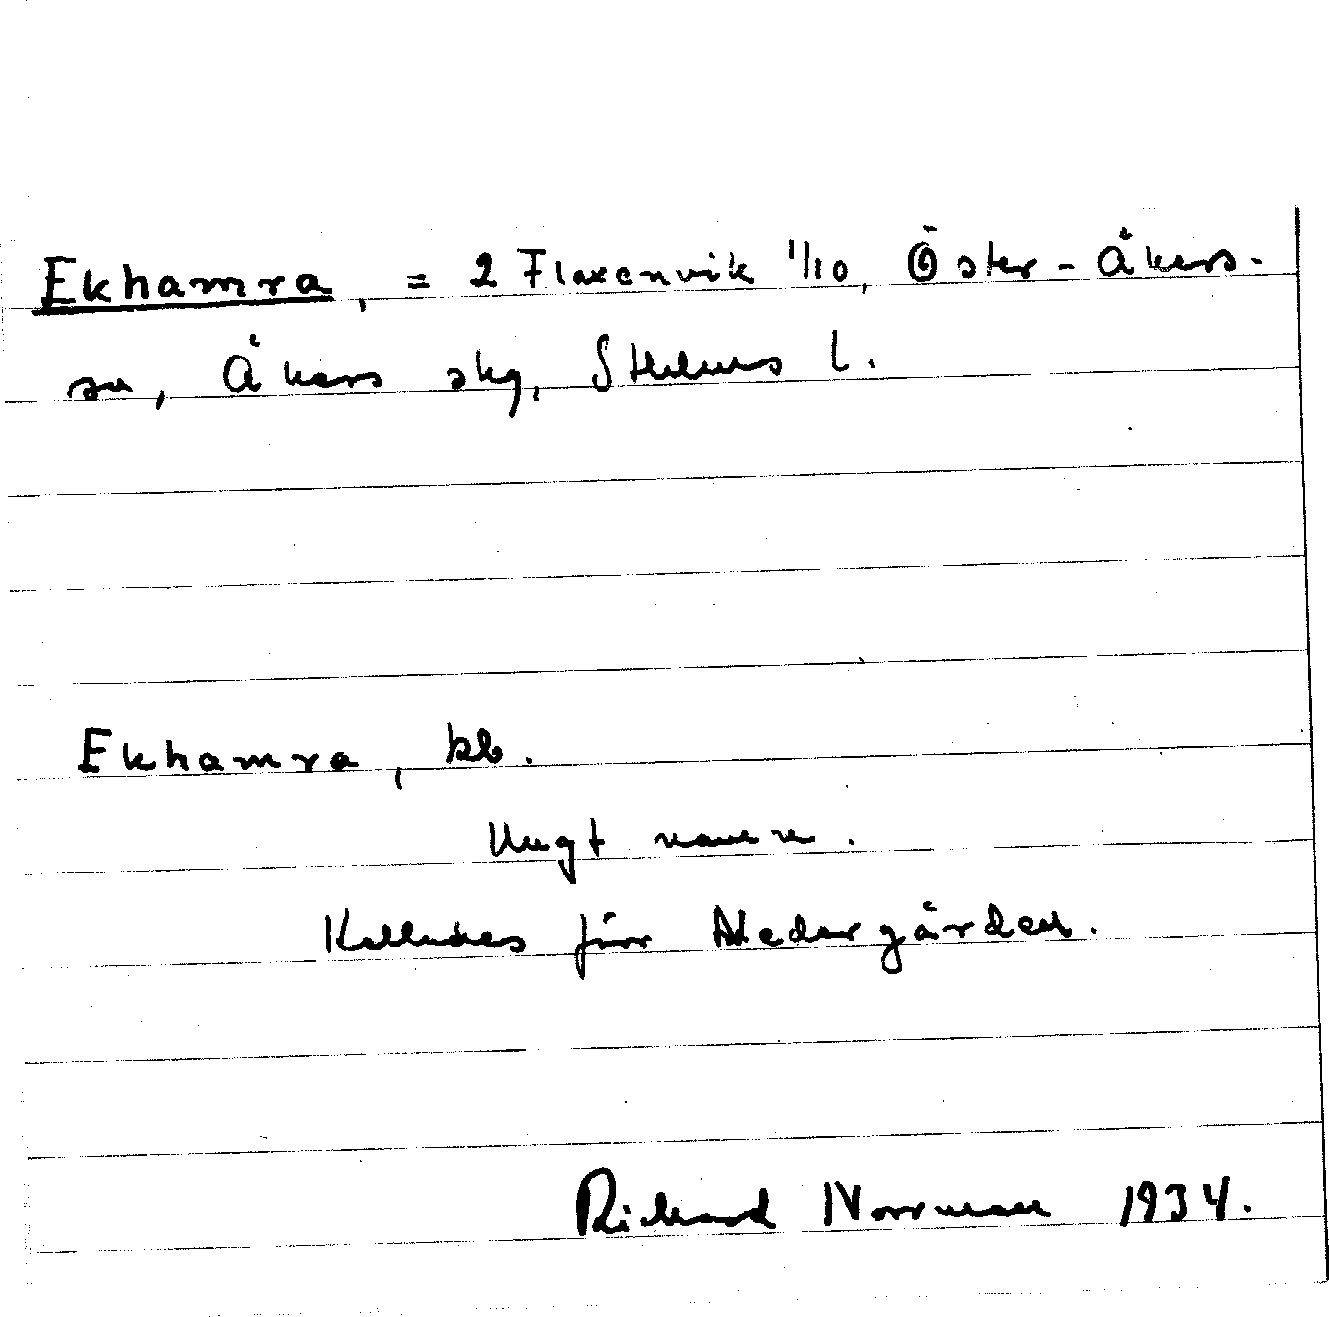 Ekhamra, = 2 Flaxenvik 1/10, Öster-Åkers-
sn, Åkers skg, Sthlms l.
Ekhamra, kb.
Ungt namn.
Kallades förr Nedergården.
Richard Norrman 1934.